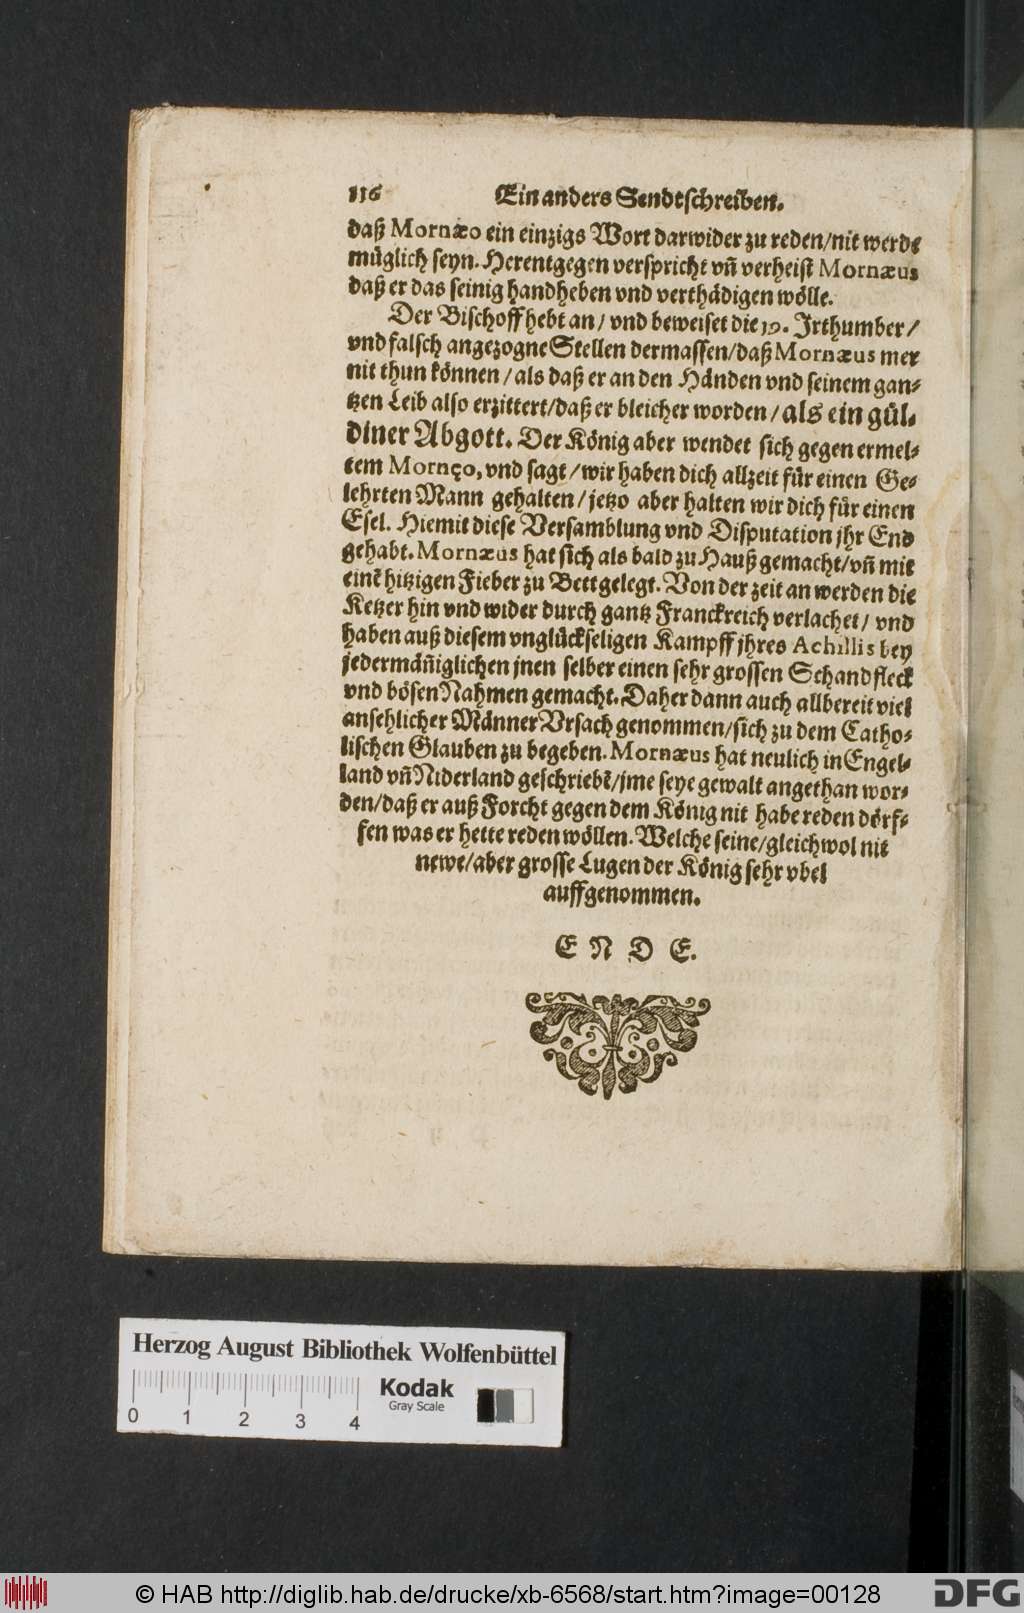 116 Ein anders Sendtschreiben.
daß Mornæo ein einzigs Wort darwider zu reden/nit werde
müglich seyn. Herentgegen verspricht vñ verheist Mornæus
daß er das seinig handheben vnd verthädigen wölle.
Der Bischoff hebt an/ vnd beweiset die 19. Irthumber/
vnd falsch angezogne Stellen dermassen/daß Mornæus mer
nit thun können/als daß er an den Händen vnd seinem gan-
tzen Leib also erzittert/daß er bleicher worden/als ein gül-
diner Abgott. Der König aber wendet sich gegen ermel-
tem Mornęo, vnd sagt/wir haben dich allzeit für einen Ge-
lehrten Mann gehalten/jetzo aber halten wir dich für einen
Esel. Hiemit diese Versamblung vnd Disputation jhr End
gehabt. Mornæus hat sich als bald zu Hauß gemacht/vñ mit
einẽ hitzigen Fieber zu Bett gelegt. Von der zeit an werden die
Ketzer hin vnd wider durch gantz Franckreich verlachet/ vnd
haben auß diesem vnglückseligen Kampff jhres Achillis bey
jedermäñiglichen jnen selber einen sehr grossen Schandfleck
vnd bösen Nahmen gemacht. Daher dann auch allbereit viel
ansehlicher Männer Vrsach genommen/sich zu dem Catho-
lischen Glauben zu begeben. Mornæus hat neulich in Engel-
land vñ Niderland geschriebẽ/jme seye gewalt angethan wor-
den/daß er auß Forcht gegen dem König nit habe reden dörf-
fen was er hette reden wöllen. Welche seine/gleichwol nit
newe/aber grosse Lugen der König sehr vbel
auffgenommen.
E N D E.
Herzog August Bibliothek Wolfenbüttel
Kodak
Gray Scale
0 1 2 3 4
© HAB http://diglib.hab.de/drucke/xb-6568/start.htm?image=00128
DFG